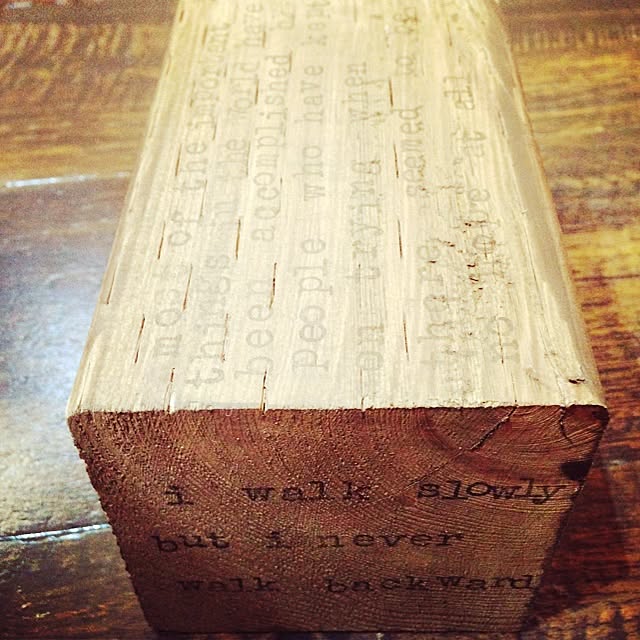 most of the important
things in the world have
been accomplished
people who have kept
on trying when
there seemed to be
no hope at all
i walk slowly
but i never
walk backward